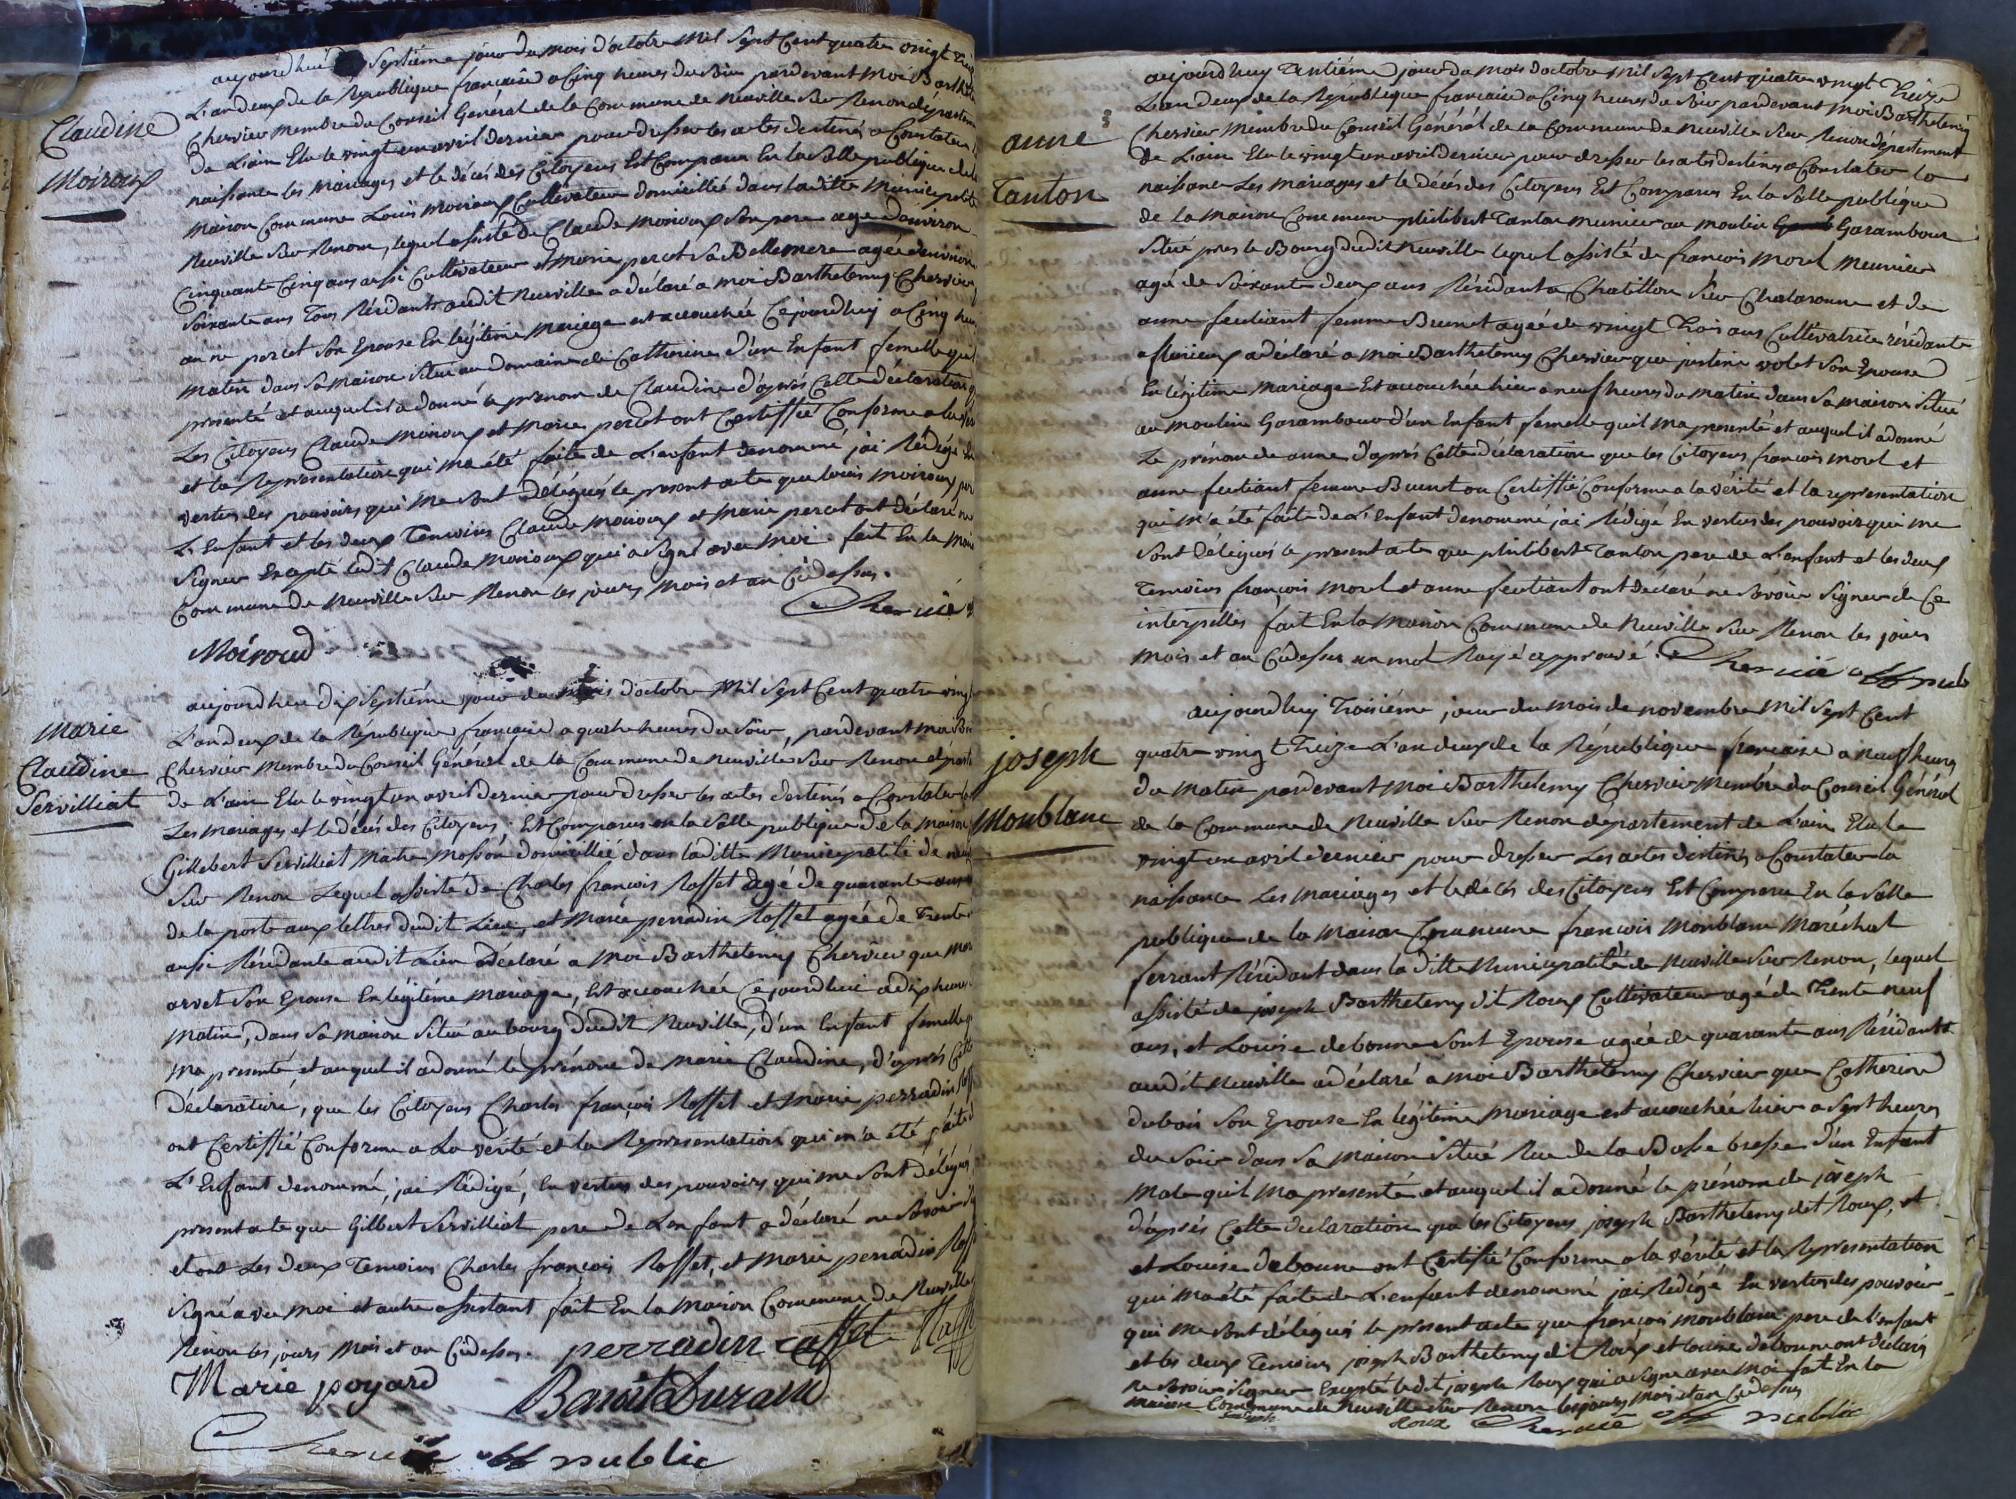 Claudine
Moiroux
aujourdhui Septiéme jour du mois d'octobre mil Sept Cent quatre vingt treize
L'an deux de la République francaise a Cinq heures du Soir pardevant moi Barthele
Chervier membre du Conseil General de la Commune de neuville Sur Renon départem
de L'ain Elu le vingt un avril dernier pour dresser les actes destinés a Constater
naissance les mariages et le décés des Citoyens Est Comparu En la Salle publique de la
maison Commune Louis moiroux Cultivateur domicillié dans laditte municipalité
Neuville Sur Renon, lequel assisté de Claude moiroux Son pere agé d'environ
Cinquante Cinq ans aussi Cultivateur et marie percet Sa Bellemere agée d'environ
Soixante ans Tous Résidants audit Neuville a déclaré a moi Barthelemy Chervier
anne percet Son Epouse En légitime mariage est accouchée Cejourdhuy a Cinq heu
matin dans Sa maison Situé au domaine de Catherine d'un Enfant femelle qu'il
presenté et auquel il a donné le prénom de Claudine d'après Cette déclaration
Les Citoyens Claude moiroux et Marie percet ont Certiffié Conforme a la
et la Représentation qui m'a été faite de L'enfant denommé j'ai Rédigé En
vertus des pouvoirs qui me Sont délégués le present acte que louis moiroux per
L'Enfant et les deux Temoins Claude moiroux et Marie percet ont déclaré ne
Signer Excepté ledit Claude moiroux qui a Signé avec moi. fait En la mais
Commune de Neuville Sur Renon les jours mois et an Cidessus.
Chervié
Moiroud
Marie
Claudine
Servilliat
aujourdhui dix Septiéme jour du mois d'octobre mil Sept Cent quatre vingt
L'an deux de la République française a quatre heures du Soir, pardevant moi Bar
Chervier Membre du Conseil Général de la Commune de Neuville Sur Renon départe
de L'ain Elu le vingt un avril dernier pour dresser les actes destinés a Constater
Les mariages et le décés des Citoyens; Est Comparu en la Salle publique de la maison
Gillebert Servilliat Maitre Masson domicillié dans laditte Municipalité de neuv
Sur Renon Lequel assisté de Charles françois Roffet agé de quarante ans
de la poste aux lettres dudit Lieu, et Marie perradin Roffet agée de Trente
aussi Résidante audit Lieu a déclaré a moi Barthelemy Chervier que mar
arvet Son Epouse En légitime mariage, Est accouchée Cejourdhui a dix heures
Matin, dans Sa maison Situé au bourg dudit Neuville, d'un Enfant femelle q
Ma presenté, et auquel il a donné le prénom de Marie Claudine, d'après Cette
Déclaration, que les Citoyens Charles françois Roffet et Marie perradin Roff
ont Certiffié Conforme a La vérité et la Représentation qui m'a été faite d
L'Enfant denommé, j'ai Rédigé, En vertus des pouvoirs qui me Sont délégués
present acte que Gilbert Servilliat pere de L'enfant a déclaré ne Savoir
et ont Les deux Temoins Charles françois Roffet, et Marie perradin Roff
Signé avec moi et autre assistant fait En la Maison Commune de Neuville
Renon les jours Mois et an Cidessus. perradin raffet
Marie poyard
Benoit Durand
Chervié off public
anne
Tanton
aujourdhuy Trentiéme jour du mois d'octobre mil Sept Cent quatre vingt Treize
L'an deux de la République francaise a Cinq heures du Soir pardevant Moi Barthelemy
Chervier Membre du Conseil Général de la Commune de Neuville Sur Renon département
de L'ain Elu le vingt un avril dernier pour dresser les actes destinés a Constater la
naissance Les mariages et le décés des Citoyens Est Comparu En la Salle publique
de la maison Commune philibert Tanton munier au moulin Garambour
Situé pres le Bourg dudit Neuville lequel assisté de françois Morel Meunier
agé de Soixante deux ans Résidant a Chatillon Sur Chalaronne et de
anne feuliant femme Brunet agée de vingt Trois ans Cultivatrice résidante
a fleurieux a déclaré a moi Barthelemy Chervier que justine volet Son Epouse
En légitime Mariage Est accouchée hier a neuf heures du matin dans Sa maison Situé
au moulin Garambour d'un Enfant femelle quil ma presenté et auquel il a donné
Le prénom de anne d'après Cette déclaration que les Citoyens françois morel et
anne feuliant femme Brunet on Certiffié Conforme a la vérité et la representation
qui m'a été faite de L'Enfant denommé j'ai Rédigé En vertus des pouvoirs qui me
Sont délégués le present acte que philibert Tanton pere de L'enfant et les deux
Temoins françois Morel et anne feuliant ont déclaré ne Savoir Signer de Ce
interpellés fait En la Maison Commune de Neuville Sur Renon les jours
Mois et an Cidessus un mot Rayé approuvé. Chervié off pub
joseph
Monblanc
aujourdhuy Troisiéme jour du mois de novembre Mil Sept Cent
quatre vingt Treize L'an deux de la République francaise a neuf heures
du Matin pardevant moi Barthelemy Chervier Membre du Conseil Général
de la Commune de Neuville Sur Renon département de L'ain Elu le
vingt un avril dernier pour dresser Les actes destinés a Constater la
naissance Les mariages et le décés des Citoyens Est Comparu En la Salle
publique de la Maison Commune françois Monblanc Maréchal
ferrant Résidant dans la ditte Municipalité de Neuville Sur Renon, lequel
assisté de joseph Barthelemy dit Roux Cultivateur agé de Trente neuf
ans, et Louise debonne Sont Epouse agée de quarante ans Résidants
audit Neuville a déclaré a moi Barthelemy Chervier que Catherine
dubois Son Epouse En légitime Mariage est accouchée hier a Sept heures
du Soir dans Sa Maison Situé Rue de la Basse bresse d'un Enfant
Male quil Ma presenté et auquel il a donné le prénom de joseph
d'après Cette declaration que les Citoyens joseph Barthelemy dit Roux, et
et Louise debonne ont Certifié Conforme a la vérité et la Représentation
qui Ma été faite de L'enfant denommé j'ai Rédigé En vertus des pouvoir
qui Me Sont délégués le présent acte que françois Monblanc pere de l'enfant
et les deux Temoins joseph Barthelemy dit Roux et Louise debonne ont déclaré
ne Savoir Signer Excepté ledit joseph Roux qui a Signé avec Moi fait En la
Maison Commune de Neuville Sur Renon les jours Mois et an Cidessus
joseph Roux Chervié off public